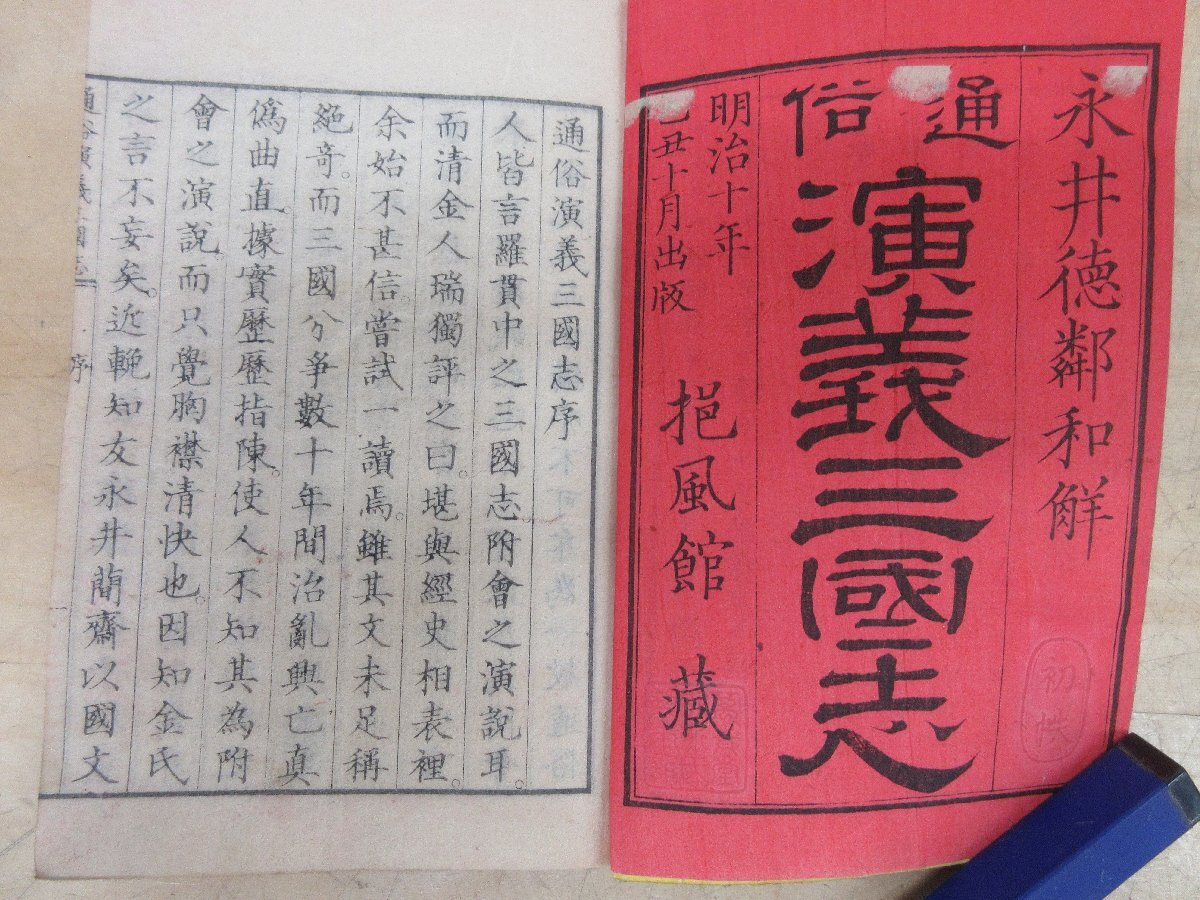 永井徳鄰和觧
通俗
演義三國志
明治十年
丑十月出版
挹風館 藏
初帙
通俗演義三國志序
人皆言羅貫中之三國志附會之演說耳。
而清金人瑞獨評之曰。堪與經史相表裡。
余始不甚信。嘗試一讀焉。雖其文未足稱
絕竒。而三國分爭數十年間治亂興亡真
僞曲直據實歷歷指陳。使人不知其為附
會之演說。而只覺胸襟清快也。因知金氏
之言不妄矣。近輓知友永井蕳齋以國文
通俗演義三國志 序